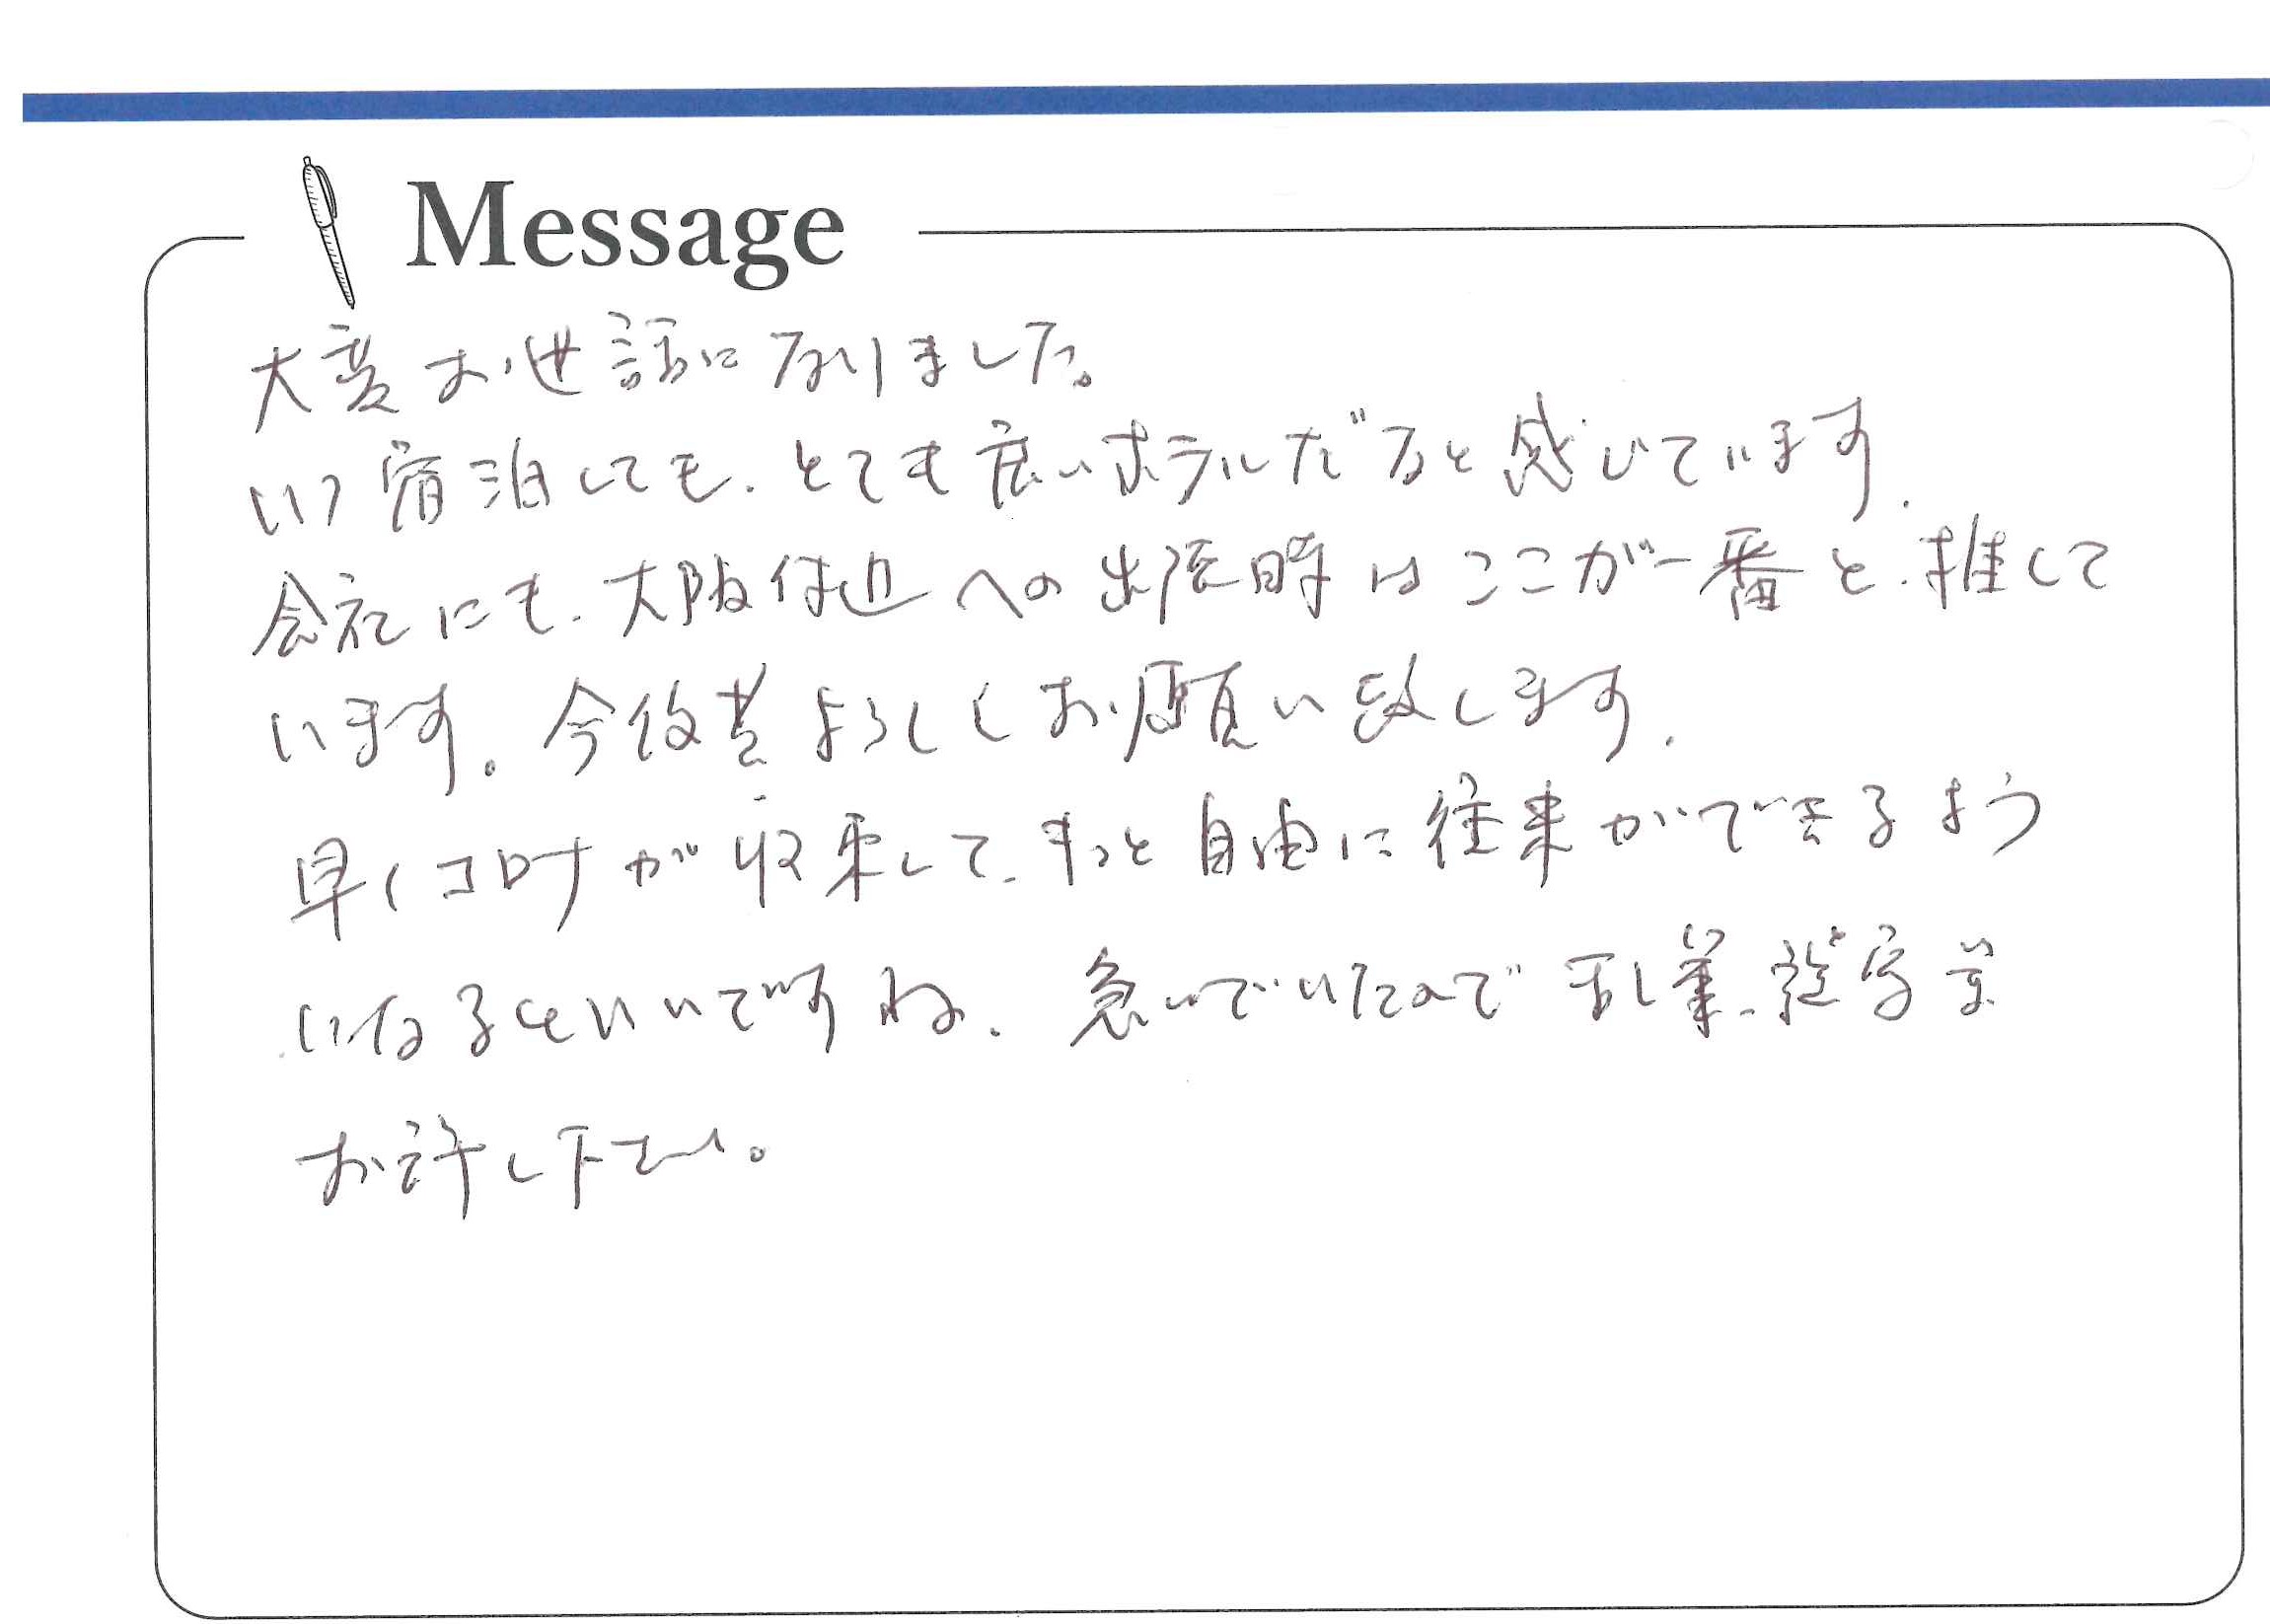 Message
大変お世話になりました。
いつ宿泊しても、とても良いホテルだなと感じています。
会社にも、大阪付近への出張時はここが一番と、推して
います。今後共よろしくお願い致します。
早くコロナが収束して、もっと自由に往来ができるよう
になるといいですね。急いでいたので乱筆、雑字
お許し下さい。